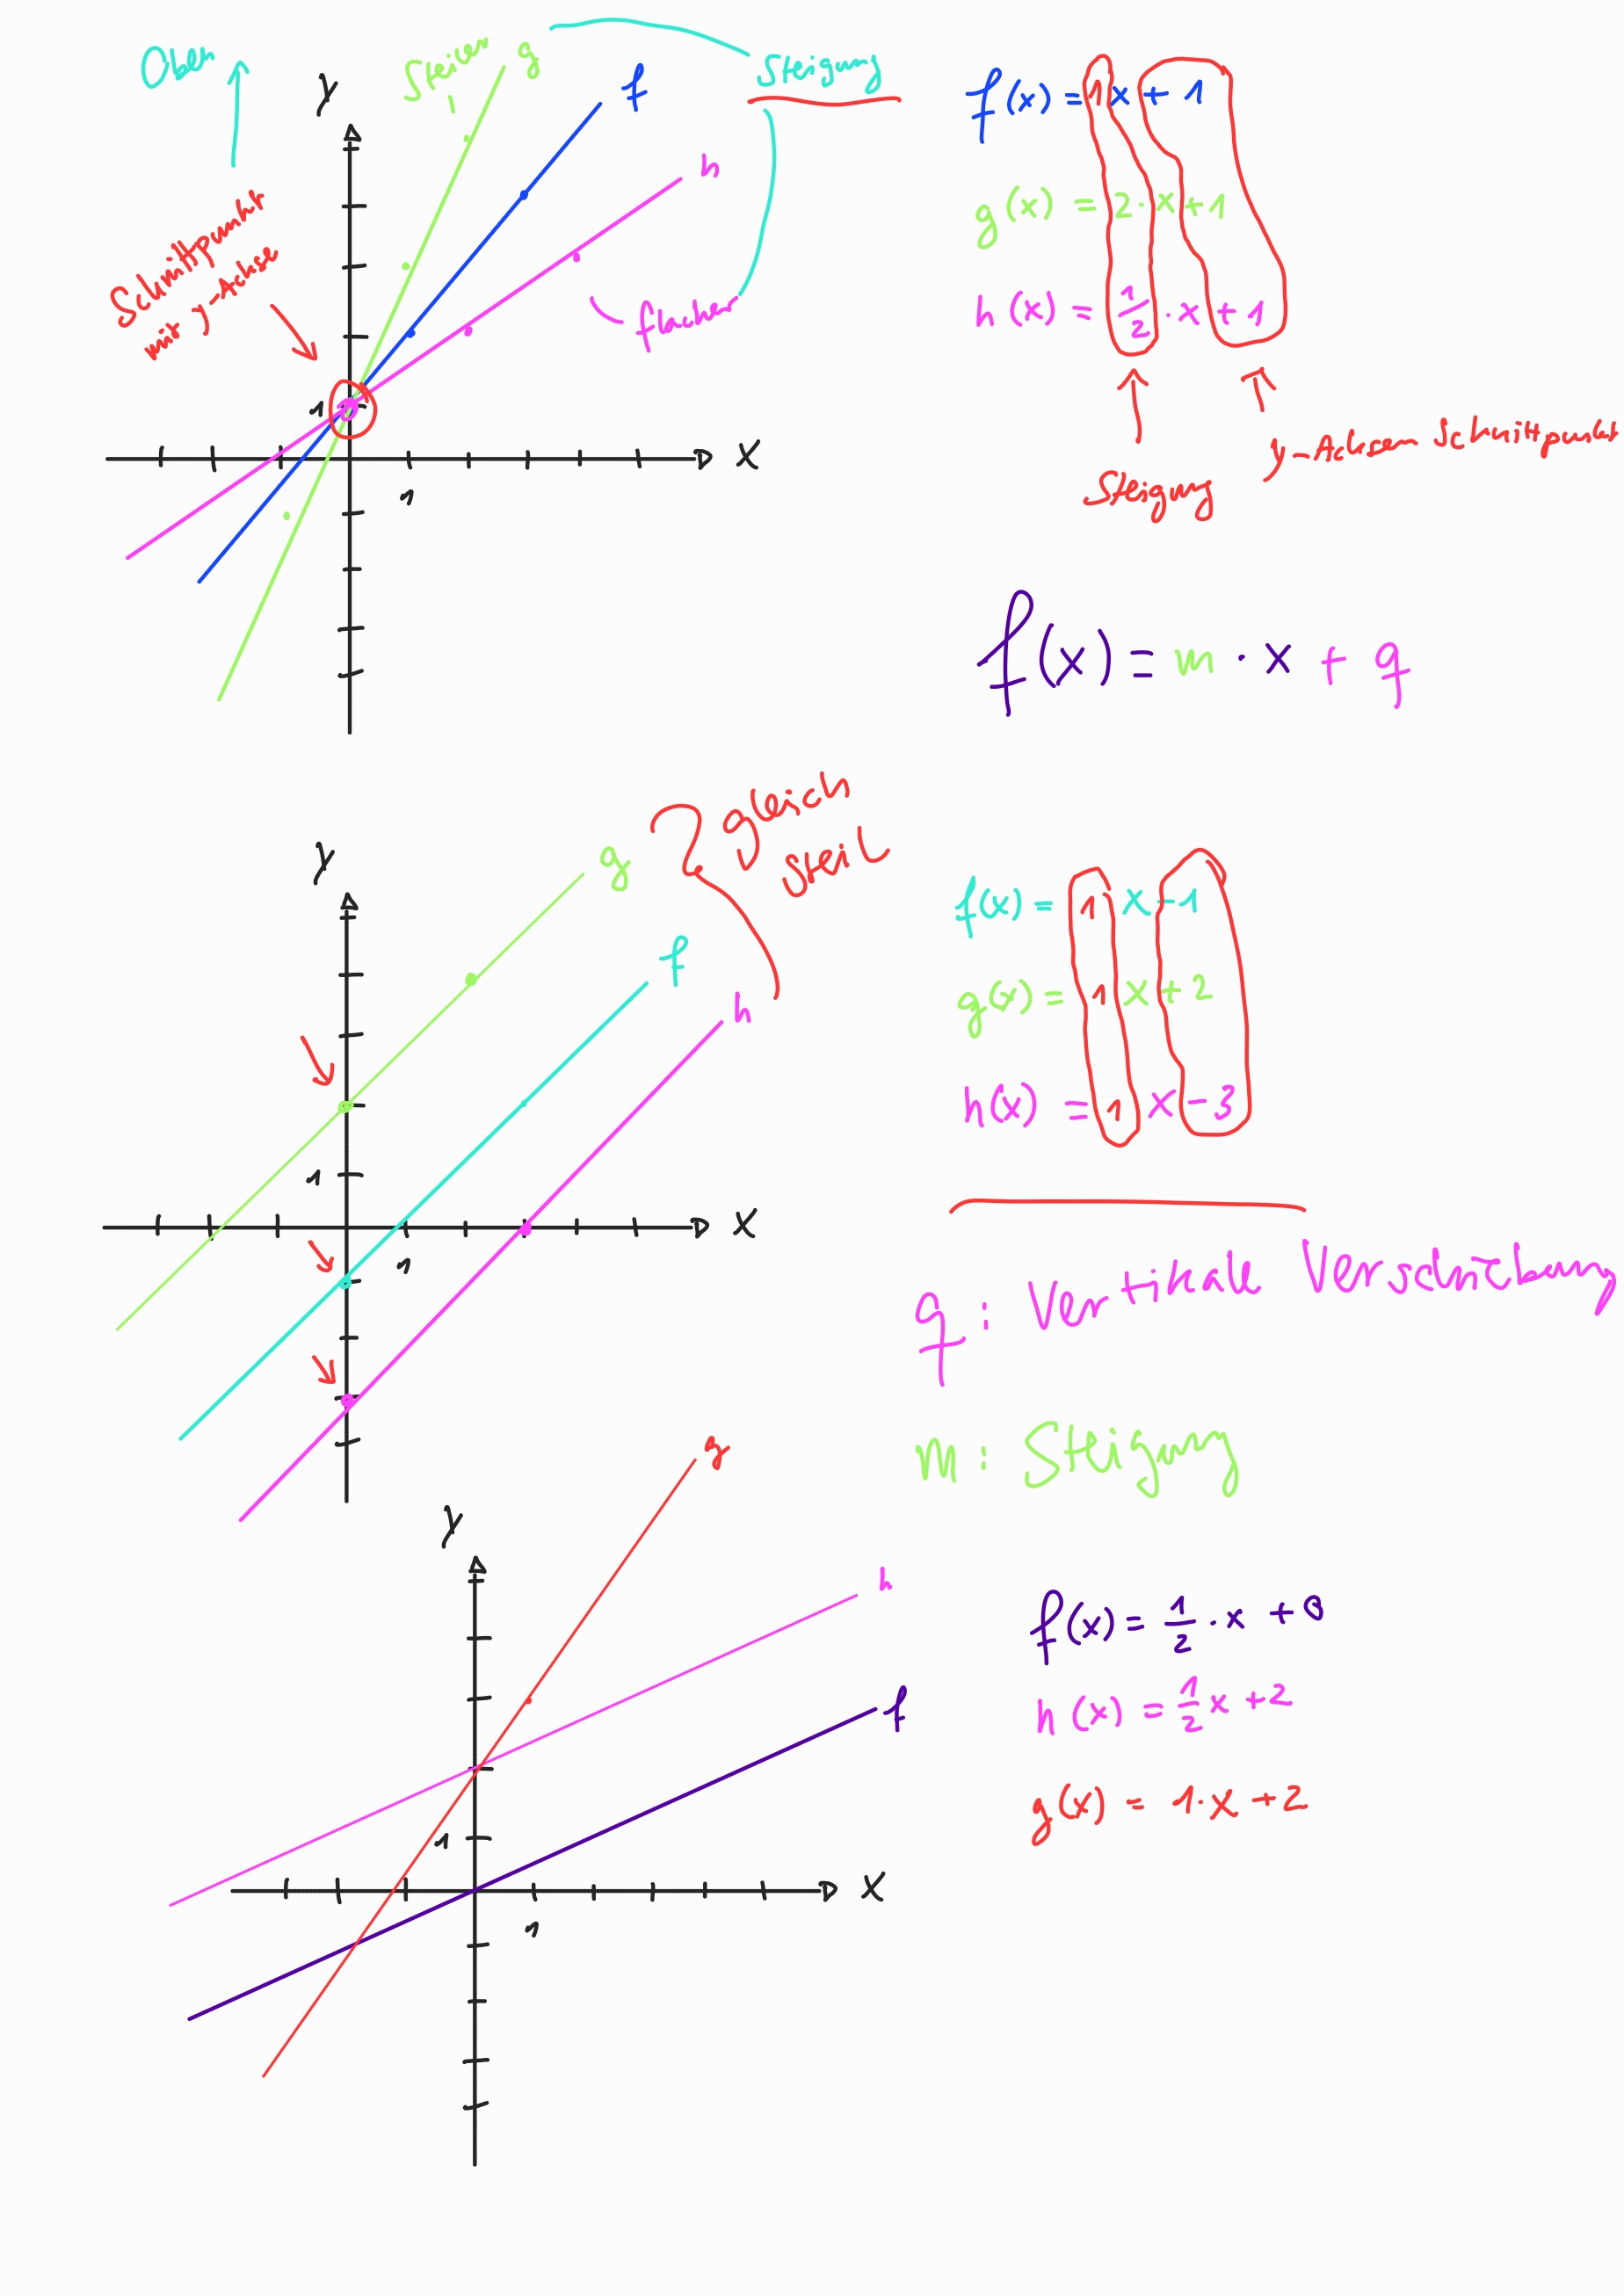 Oben
Steiler g
f
Steigung
y
h
Schnittpunkt
mit y-Achse
flacher
1
x
1
f(x) = 1x + 1
g(x) = 2·x+1
h(x) = 1/2 · x + 1
Steigung
y-Achsen Schnittpunkt
f(x) = m · x + q
y
g
gleich
steil
f
h
1
x
1
f(x) = 1 x-1
g(x) = 1 x+2
h(x) = 1 x-3
q : Vertikale Verschiebung
m : Steigung
y
g
h
f
1
x
1
f(x) = 1/2 · x + 0
h(x) = 1/2 x +2
g(x) = 1·x +2